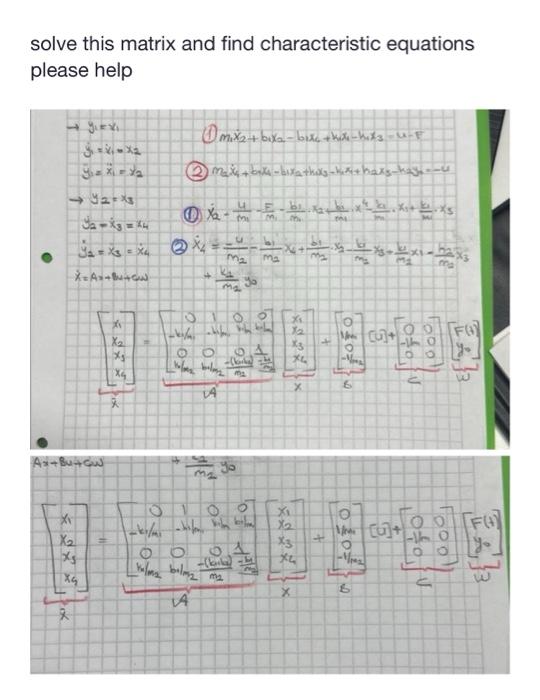 solve this matrix and find characteristic equations
please help
→ y₁ = x₁
ẏ₁ = ẋ₁ = x₂
ÿ₁ = ẍ₁ = ẋ₂
→ y₂ = x₃
ẏ₂ = ẋ₃ = x₄
ÿ₂ = ẍ₃ = ẋ₄
ẋ = Ax + Bu + Cw
① m₁ẋ₂ + b₁x₂ - b₁x₄ + k₁x₁ - k₁x₃ = u - F
② m₂ẋ₄ + b₁x₄ - b₁x₂ + k₁x₃ - k₁x₁ + k₂x₃ - k₂y₀ = -u
① ẋ₂ = u/m₁ - F/m₁ - b₁/m₁ . x₂ + b₁/m₁ . x4 - k₁/m₁ . x₁ + k₁/m₁ . x₃
② ẋ₄ = -u/m₂ - b₁/m₂ x₄ + b₁/m₂ . x₂ - k₁/m₂ x₃ + k₁/m₂ x₁ - k₂/m₂ x₃
+ k₂/m₂ y₀
[x₁ x₂ x₃ x₄] = [0 1 0 0
-k₁/m₁ -b₁/m₁ k₁/m₁ b₁/m₁
0 0 0 1
k₁/m₂ b₁/m₂ -(k₁+k₂)/m₂ -b₁/m₂] [x₁ x₂ x₃ x₄] + [0 1/m₁ 0 -1/m₂] [u] + [0 0
-1/m 0
0 0] [F(t) y₀]
ẋ A x B C w
Ax + Bu + Cw
+ k₂/m₂ y₀
[x₁ x₂ x₃ x₄] = [0 1 0 0
-k₁/m₁ -b₁/m₁ k₁/m₁ b₁/m₁
0 0 0 1
k₁/m₂ b₁/m₂ -(k₁+k₂)/m₂ -b₁/m₂] [x₁ x₂ x₃ x₄] + [0 1/m₁ 0 -1/m₂] [u] + [0 0
-1/m 0
0 0] [F(t) y₀]
ẋ A x B C w